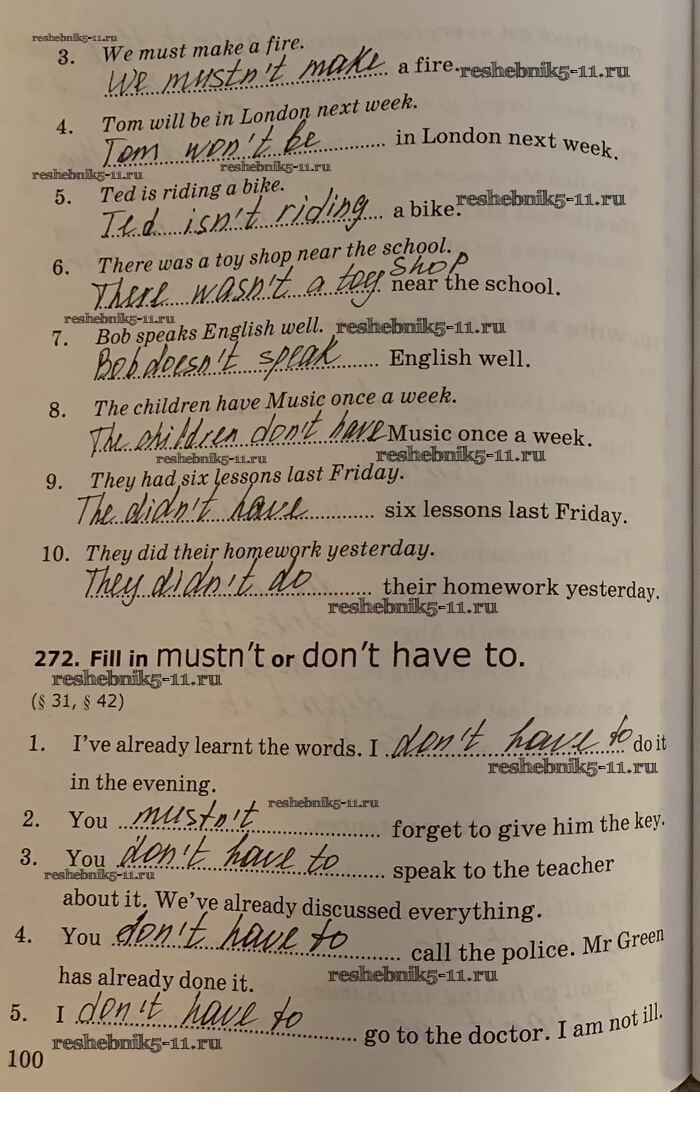 reshebnik5-11.ru
3. We must make a fire.
We mustn't make a fire. reshebnik5-11.ru
4. Tom will be in London next week.
Tom won't be in London next week.
reshebnik5-11.ru reshebnik5-11.ru
5. Ted is riding a bike.
Ted isn't riding a bike. reshebnik5-11.ru
6. There was a toy shop near the school.
There wasn't a toy shop near the school.
reshebnik5-11.ru
7. Bob speaks English well. reshebnik5-11.ru
Bob doesn't speak English well.
8. The children have Music once a week.
The children don't have Music once a week.
reshebnik5-11.ru reshebnik5-11.ru
9. They had six lessons last Friday.
The didn't have six lessons last Friday.
10. They did their homework yesterday.
They didn't do their homework yesterday.
reshebnik5-11.ru
272. Fill in mustn't or don't have to.
reshebnik5-11.ru
(§ 31, § 42)
1. I've already learnt the words. I don't have to do it
reshebnik5-11.ru
in the evening.
reshebnik5-11.ru
2. You mustn't forget to give him the key.
3. You don't have to speak to the teacher
reshebnik5-11.ru
about it. We've already discussed everything.
4. You don't have to call the police. Mr Green
has already done it. reshebnik5-11.ru
5. I don't have to go to the doctor. I am not ill.
reshebnik5-11.ru
100